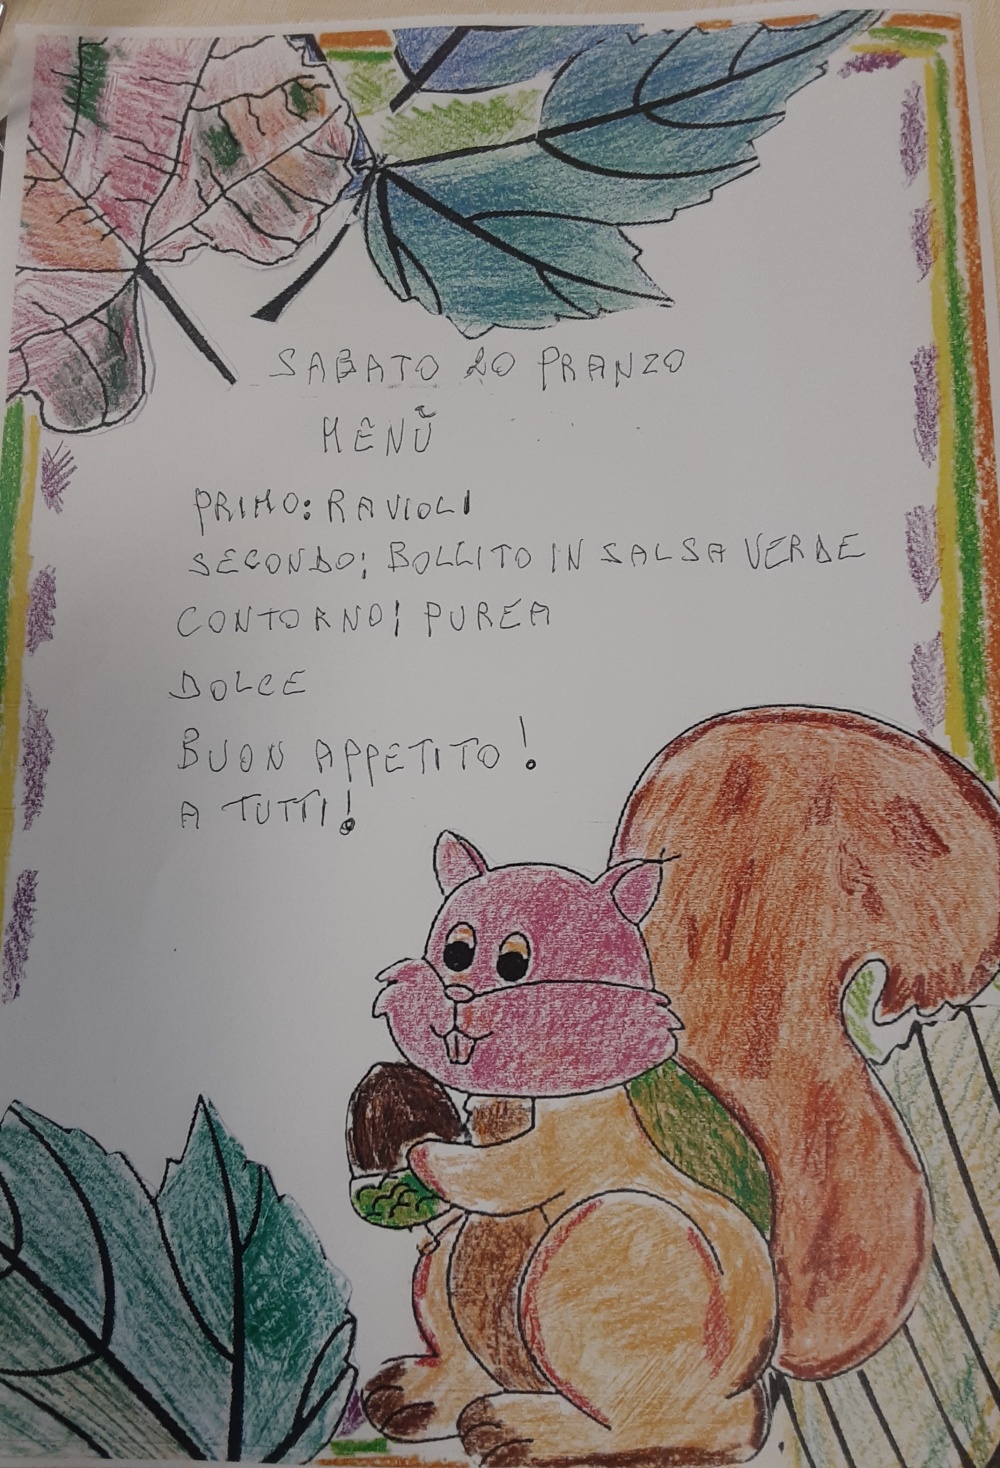 SABATO 20 PRANZO
MENÙ
PRIMO: RAVIOLI
SECONDO: BOLLITO IN SALSA VERDE
CONTORNO: PUREA
DOLCE
BUON APPETITO!
A TUTTI!